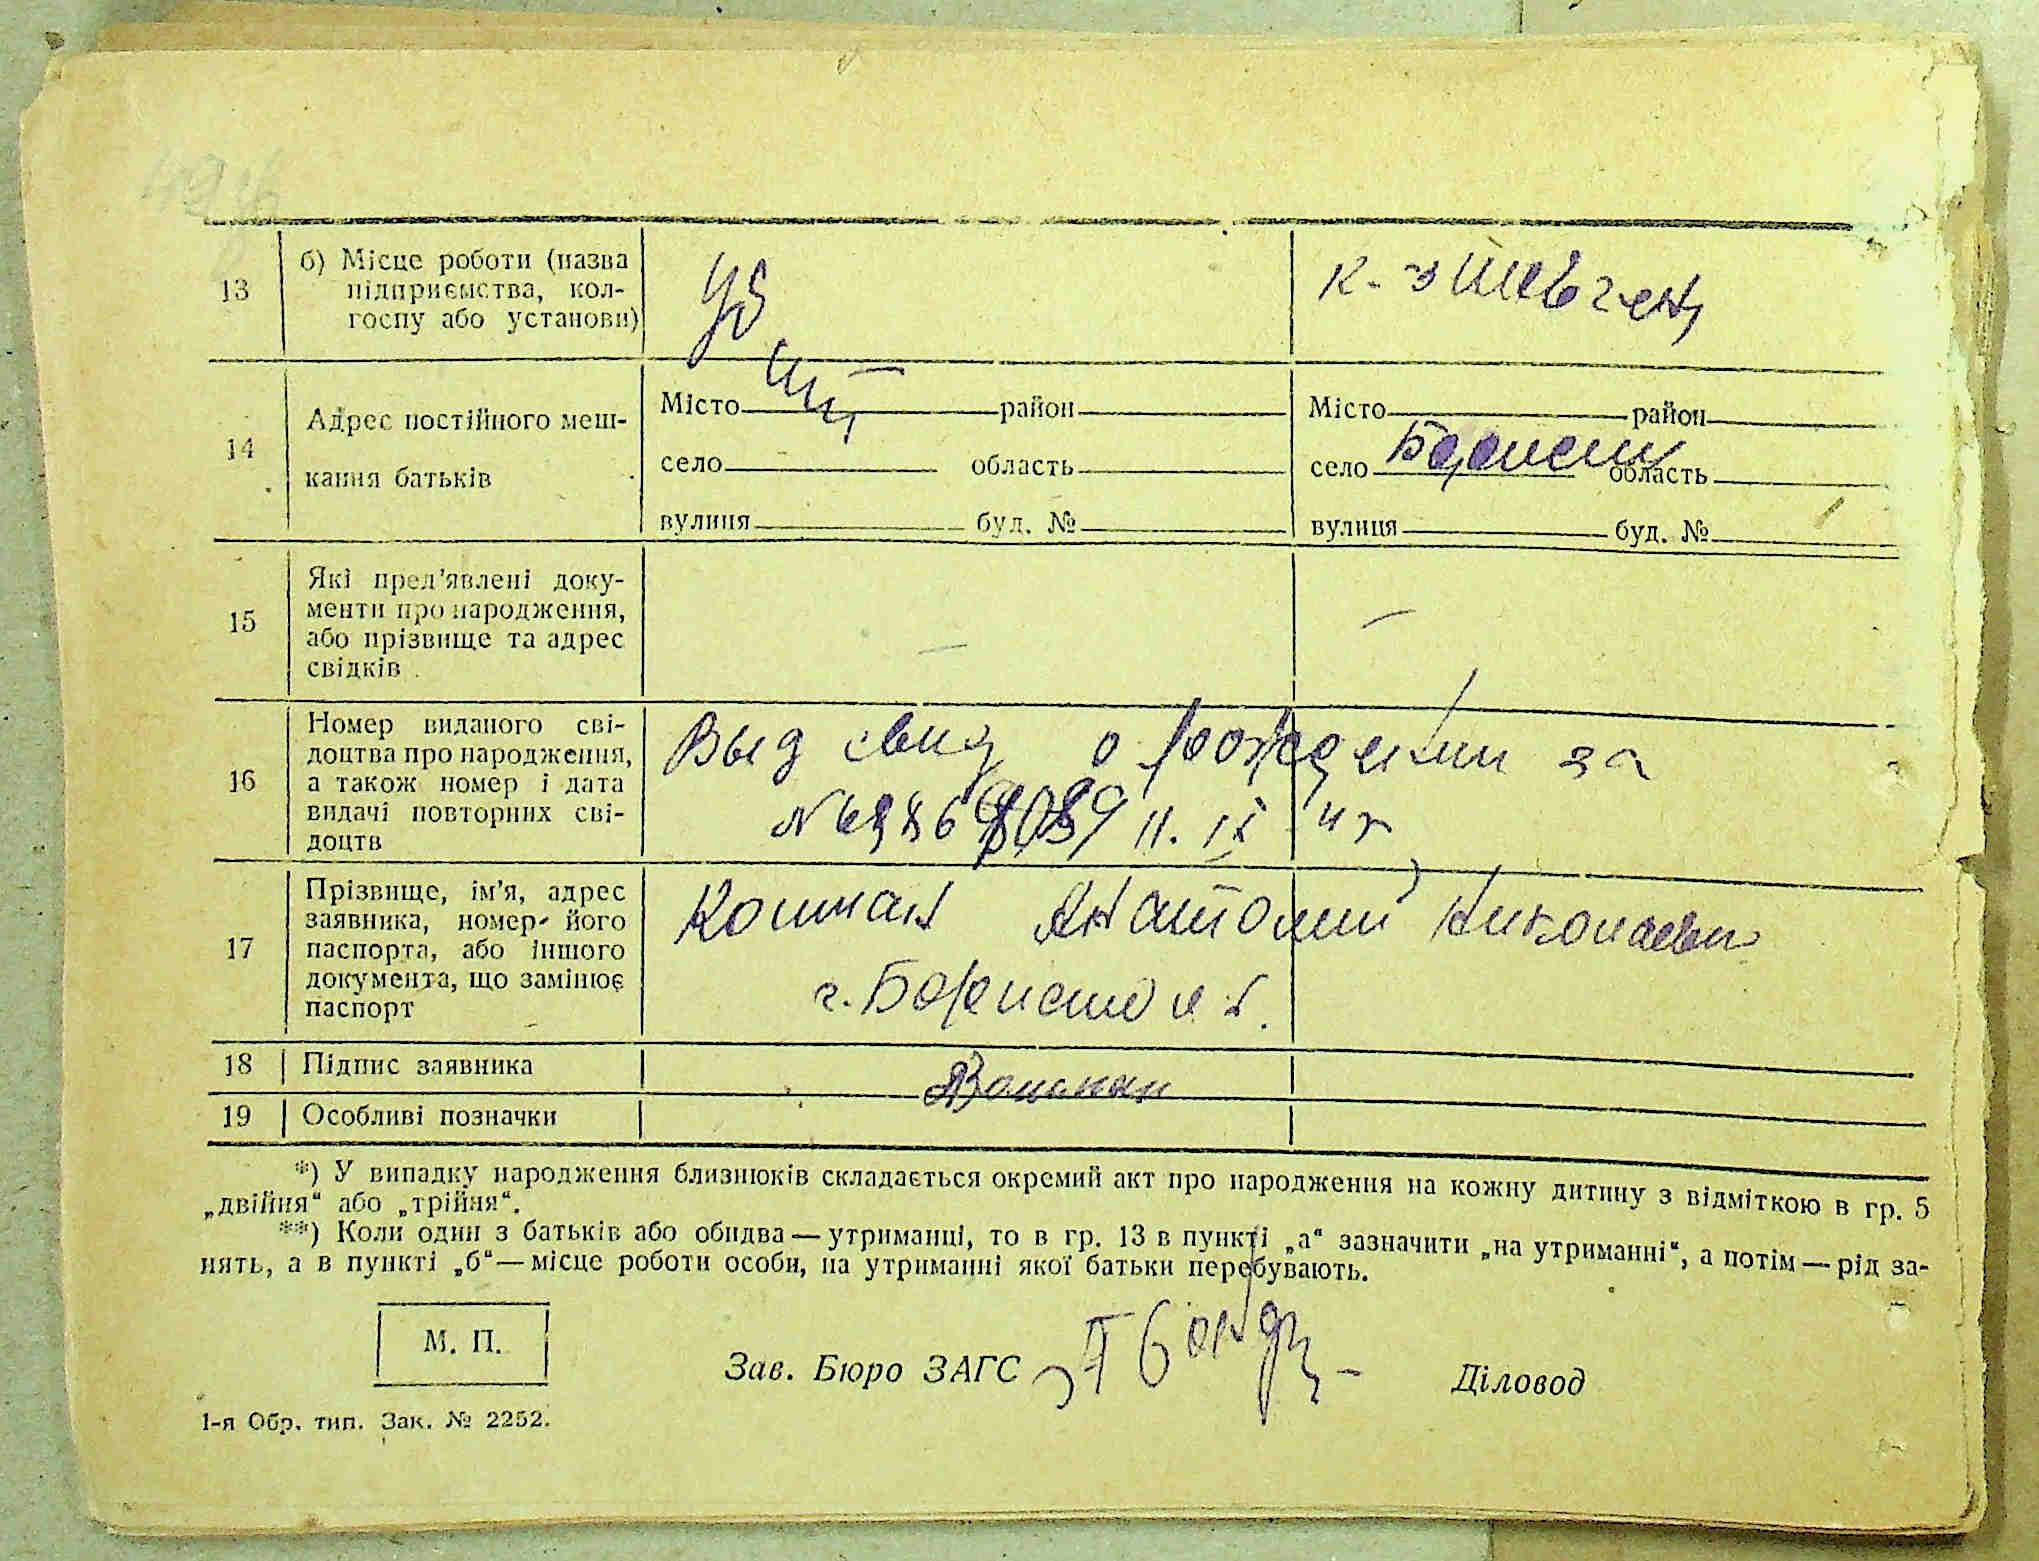 13
б) Місце роботи (назва
підприємства, кол-
госпу або установи)
14
Адрес постійного меш-
кання батьків
Місто район
село область
вулиця буд. №
Місто район
село область
вулиця буд. №
15
Які пред'явлені доку-
менти про народження,
або прізвище та адрес
свідків
16
Номер виданого сві-
доцтва про народження,
а також номер і дата
видачі повторних сві-
доцтв
Выд свид о рождении за
17
Прізвище, ім'я, адрес
заявника, номер його
паспорта, або іншого
документа, що замінює
паспорт
Анатолий Николаевич
18
Підпис заявника
19
Особливі позначки
*) У випадку народження близнюків складається окремий акт про народження на кожну дитину з відміткою в гр. 5
„двійня“ або „трійня“.
**) Коли один з батьків або обидва — утриманці, то в гр. 13 в пункті „а“ зазначити „на утриманні“, а потім — рід за-
нять, а в пункті „б“ — місце роботи особи, на утриманні якої батьки перебувають.
М. П.
Зав. Бюро ЗАГС Діловод
1-я Обр. тип. Зак. № 2252.